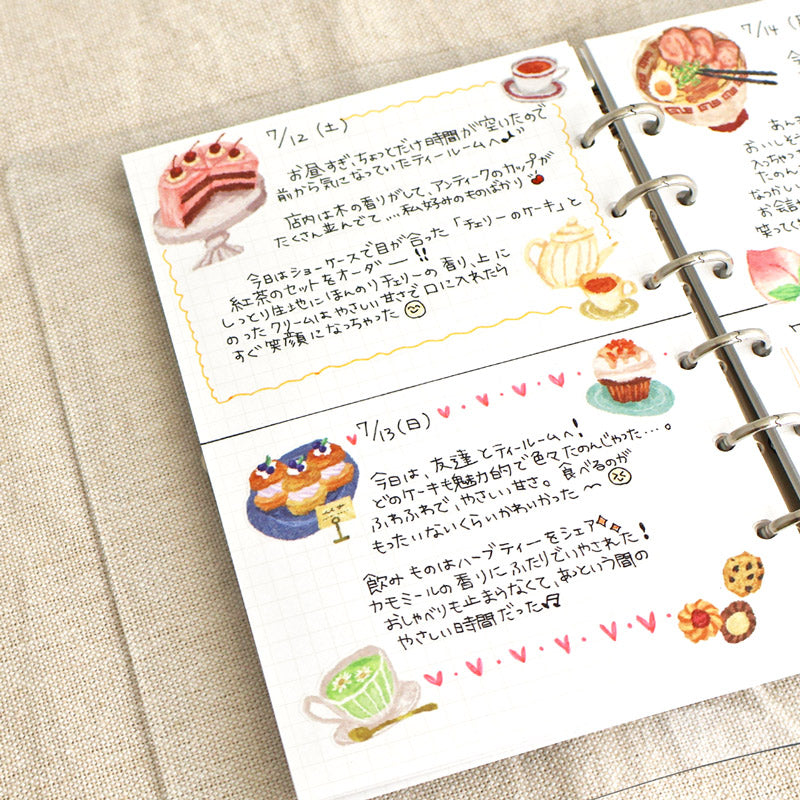 7/12 (土)
お昼すぎ、ちょっとだけ時間が空いたので
前から気になっていたティールームへ♪
店内は木の香りがして、アンティークのカップが
たくさん並んでて…私好みのものばかり
今日はショーケースで目が合った「チェリーのケーキ」と
紅茶のセットをオーダー!!
しっとり生地にほんのりチェリーの香り、上に
のったクリームはやさしい甘さで口に入れたら
すぐ笑顔になっちゃった
7/13(日)
今日は、友達とティールームへ!
どのケーキも魅力的で色々たのんじゃった…。
ふわふわで、やさしい甘さ。食べるのが
もったいないくらいかわいかった〜
飲みものはハーブティーをシェア
カモミールの香りにふたりでいやされた!
おしゃべりも止まらなくて、あっという間の
やさしい時間だった♫
7/14
今
あんま
おいしそう
入っちゃっ
たのん
なつかしい
お会計
笑ってく
7